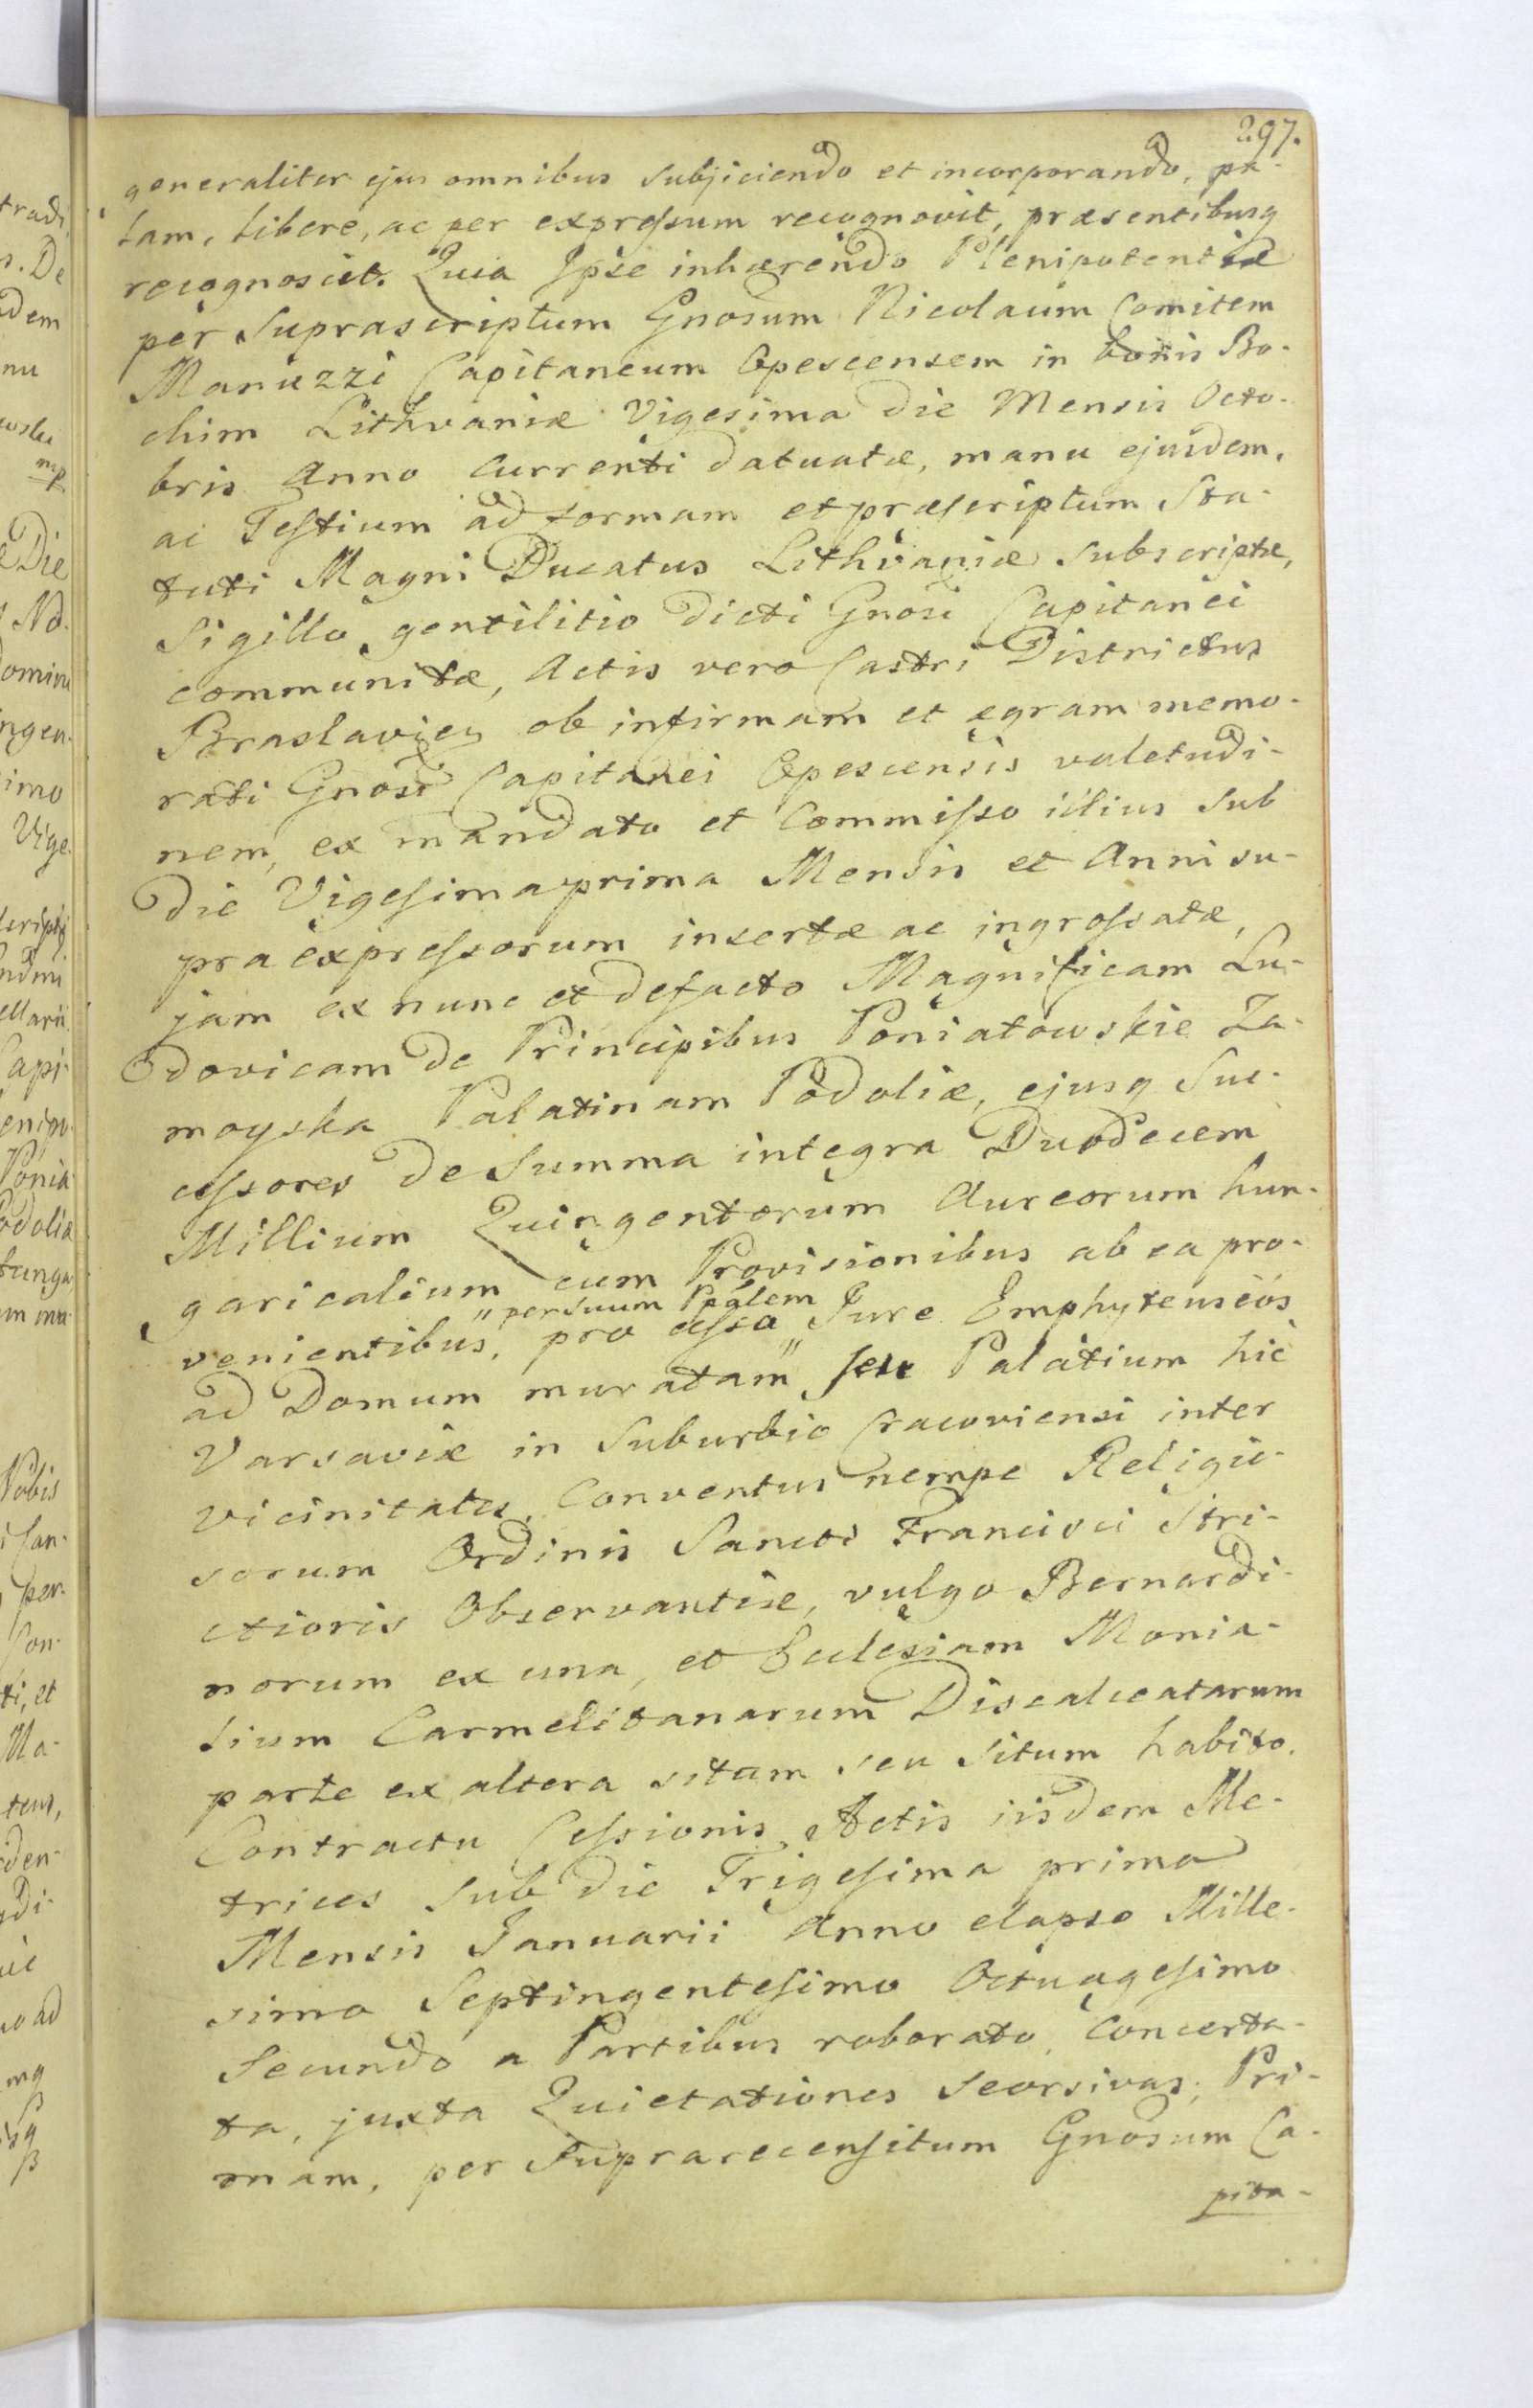 297.
generaliter ejus omnibus subjiciendo et incorporando, pa-
lam, libere, ac per expressum recognovit, præsentibusq
recognoscit. Quia Ipse inhærendo Plenipotentiæ
per suprascriptum Gnosum Nicolaum Comitem
Manuzzi Capitaneum Opescensem in bonis Bo-
chim Lithvaniæ Vigesima die Mensis Octo-
bris Anno currenti datuatæ, manu ejusdem,
ac Testium ad formam et præscriptum Sta-
tuti Magni Ducatus Lithvaniæ subscriptæ,
Sigillo gentilitio dicti Gnosi Capitanei
communitæ, Actis vero Castri Districtus
Braslavien ob infirmam et ægram memo-
rati Gnosi Capitanei Opescensis valetudi-
nem, ex mandato et Commisso illius sub
die Vigesima prima Mensis et Anni su-
pra expressorum insertæ ac ingrossatæ,
jam ex nunc et de facto Magnificam Lu-
dovicam de Principibus Poniatowskie Za-
moyska Palatinam Podoliæ, ejusq Suc-
cessores de Summa integra Duodecem
Millium Quingentorum Aureorum hun-
garicalium cum Provisionibus ab ea pro-
venientibus, pro cesso Jure Emphyteuseos
" per suum Ppalem
ad Domum muratam " seu Palatium hic
Varsaviæ in Suburbio Cracoviensi inter
vicinitates, Conventus nempe Religio-
sorum Ordinis Sancti Francisci Stri-
ctioris Observantiæ, vulgo Bernardi-
norum ex una, et Ecclesiam Monia-
lium Carmelitanarum Discalceatarum
parte ex altera sitam seu situm habito.
Contractu Cessionis Actis iisdem Me-
trices sub die Trigesima prima
Mensis Januarii Anno elapso Mille-
simo Septingentesimo Octuagesimo
Secundo a Partibus roborato, concerta-
ta, juxta Quietationes seorsivas, Pri-
mam, per suprarecensitum Gnosum Ca-
pita-